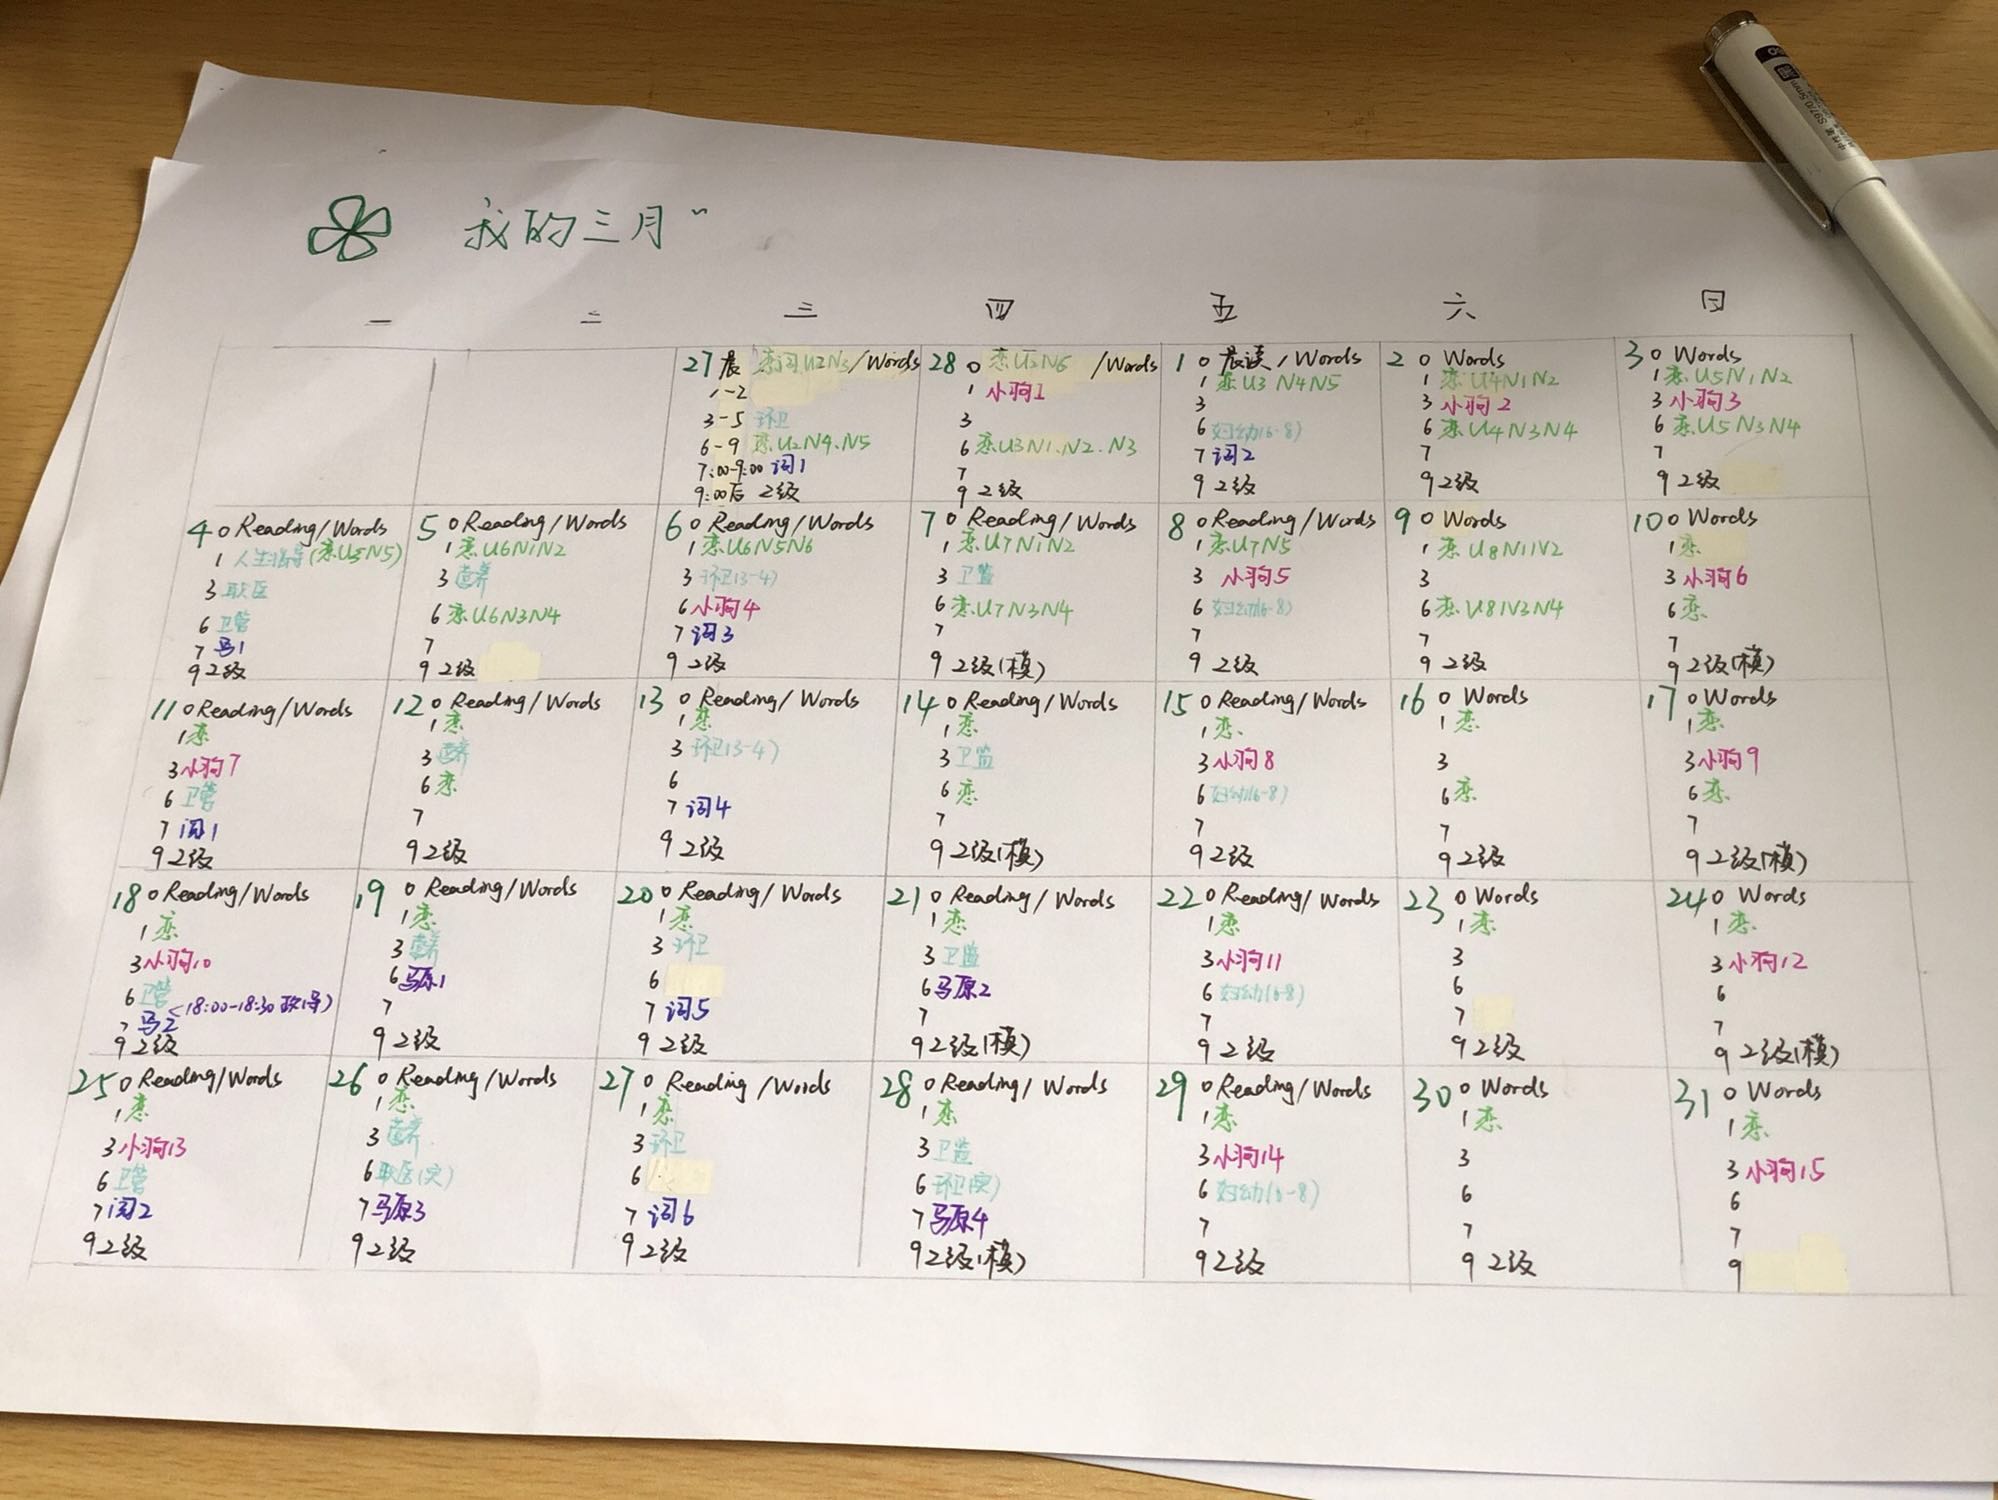 我的三月~
一 二 三 四 五 六 日
27 晨 恋词U2N3/Words
1-2
3-5 环卫
6-9 恋U2N4.N5
7:00-9:00 词1
9:00后 2级
28 0 恋U2N6 /Words
1 小狗1
3
6 恋U3N1.N2.N3
7
9 2级
1 0 晨读/Words
1 恋U3 N4N5
3
6 妇幼(6-8)
7 词2
9 2级
2 0 Words
1 恋U4N1N2
3 小狗2
6 恋U4N3N4
7
9 2级
3 0 Words
1 恋U5N1N2
3 小狗3
6 恋U5N3N4
7
9 2级
4 0 Reading/Words
1 人生指导(恋U5N5)
3 职医
6 卫管
7 马1
9 2级
5 0 Reading/Words
1 恋U6N1N2
3 营养
6 恋U6N3N4
7
9 2级
6 0 Reading/Words
1 恋U6N5N6
3 环卫(3-4)
6 小狗4
7 词3
9 2级
7 0 Reading/Words
1 恋U7N1N2
3 卫监
6 恋U7N3N4
7
9 2级(模)
8 0 Reading/Words
1 恋U7N5
3 小狗5
6 妇幼(6-8)
7
9 2级
9 0 Words
1 恋U8N1N2
3
6 恋U8N3N4
7
9 2级
10 0 Words
1 恋
3 小狗6
6 恋
7
9 2级(模)
11 0 Reading/Words
1 恋
3 小狗7
6 卫管
7 阅1
9 2级
12 0 Reading/Words
1 恋
3 营养
6 恋
7
9 2级
13 0 Reading/Words
1 恋
3 环卫(3-4)
6
7 词4
9 2级
14 0 Reading/Words
1 恋
3 卫监
6 恋
7
9 2级(模)
15 0 Reading/Words
1 恋
3 小狗8
6 妇幼(6-8)
7
9 2级
16 0 Words
1 恋
3
6 恋
7
9 2级
17 0 Words
1 恋
3 小狗9
6 恋
7
9 2级(模)
18 0 Reading/Words
1 恋
3 小狗10
6 卫管
7 马2 <18:00-18:30 政(导)
9 2级
19 0 Reading/Words
1 恋
3 营养
6 马原1
7
9 2级
20 0 Reading/Words
1 恋
3 环卫
6
7 词5
9 2级
21 0 Reading/Words
1 恋
3 卫监
6 马原2
7
9 2级(模)
22 0 Reading/Words
1 恋
3 小狗11
6 妇幼(6-8)
7
9 2级
23 0 Words
1 恋
3
6
7
9 2级
24 0 Words
1 恋
3 小狗12
6
7
9 2级(模)
25 0 Reading/Words
1 恋
3 小狗13
6 卫管
7 阅2
9 2级
26 0 Reading/Words
1 恋
3 营养
6 职医(实)
7 马原3
9 2级
27 0 Reading/Words
1 恋
3 环卫
6
7 词6
9 2级
28 0 Reading/Words
1 恋
3 卫监
6 环卫(实)
7 马原4
9 2级(模)
29 0 Reading/Words
1 恋
3 小狗14
6 妇幼(6-8)
7
9 2级
30 0 Words
1 恋
3
6
7
9 2级
31 0 Words
1 恋
3 小狗15
6
7
9